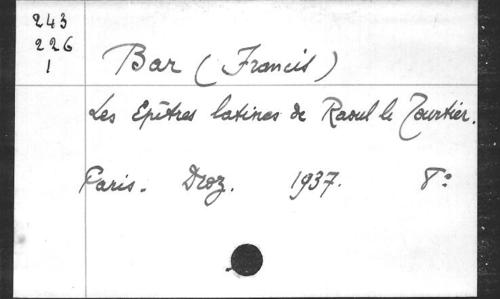 243
226
1
Bar (Francis)
Les Epîtres latines de Raoul le Tourtier.
Paris. Droz. 1937. 8°